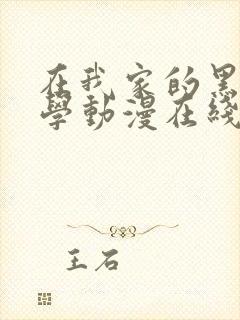 在我家的黑
學動漫在綫
王石